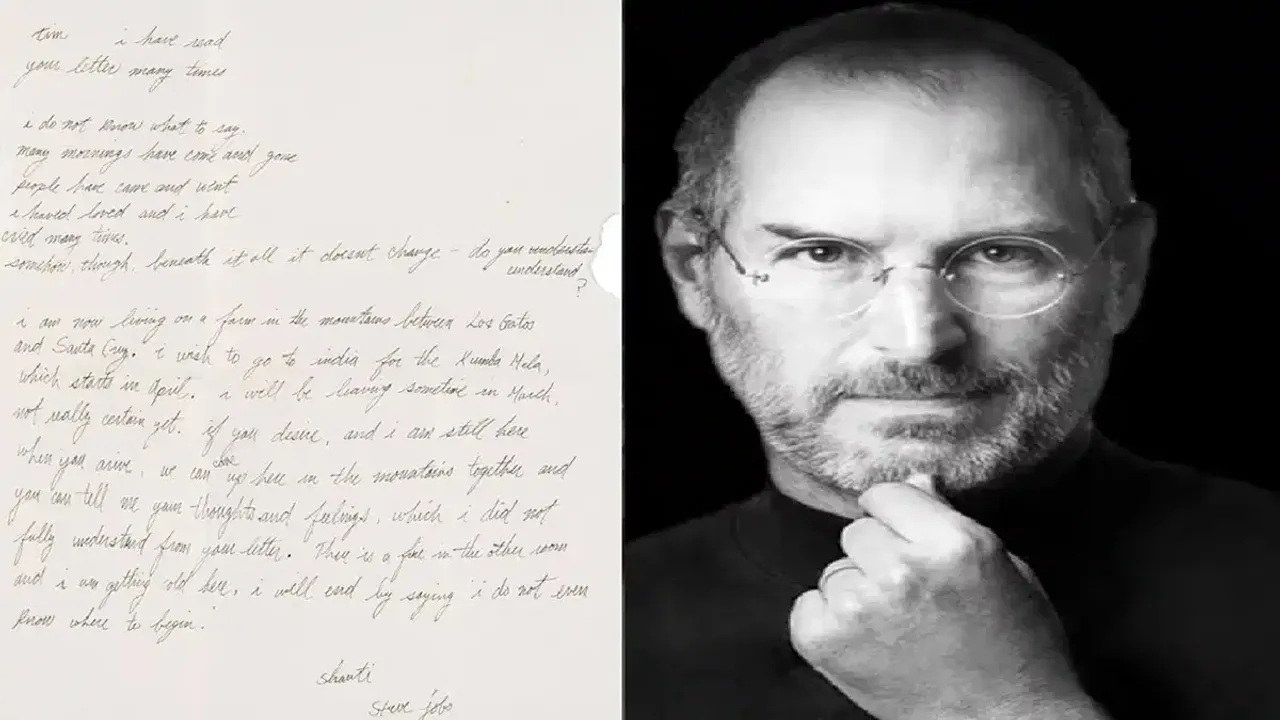 tim i have read
your letter many times
i do not know what to say.
many mornings have come and gone
people have came and went
i haved loved and i have
cried many times.
somehow, though, beneath it all it doesnt change - do you
understand
?
i am now living on a farm in the mountains between Los Gatos
and Santa Cruz. i wish to go to india for the Kumba Mela,
which starts in april. i will be leaving sometime in March,
not really certain yet. if you desire, and i am still here
when you arive, we can come up here in the mountains together and
you can tell me your thoughts and feelings, which i did not
fully understand from your letter. There is a fire in the other room
and i am getting old here. i will end by saying 'i do not even
know where to begin.'
shanti
steve jobs